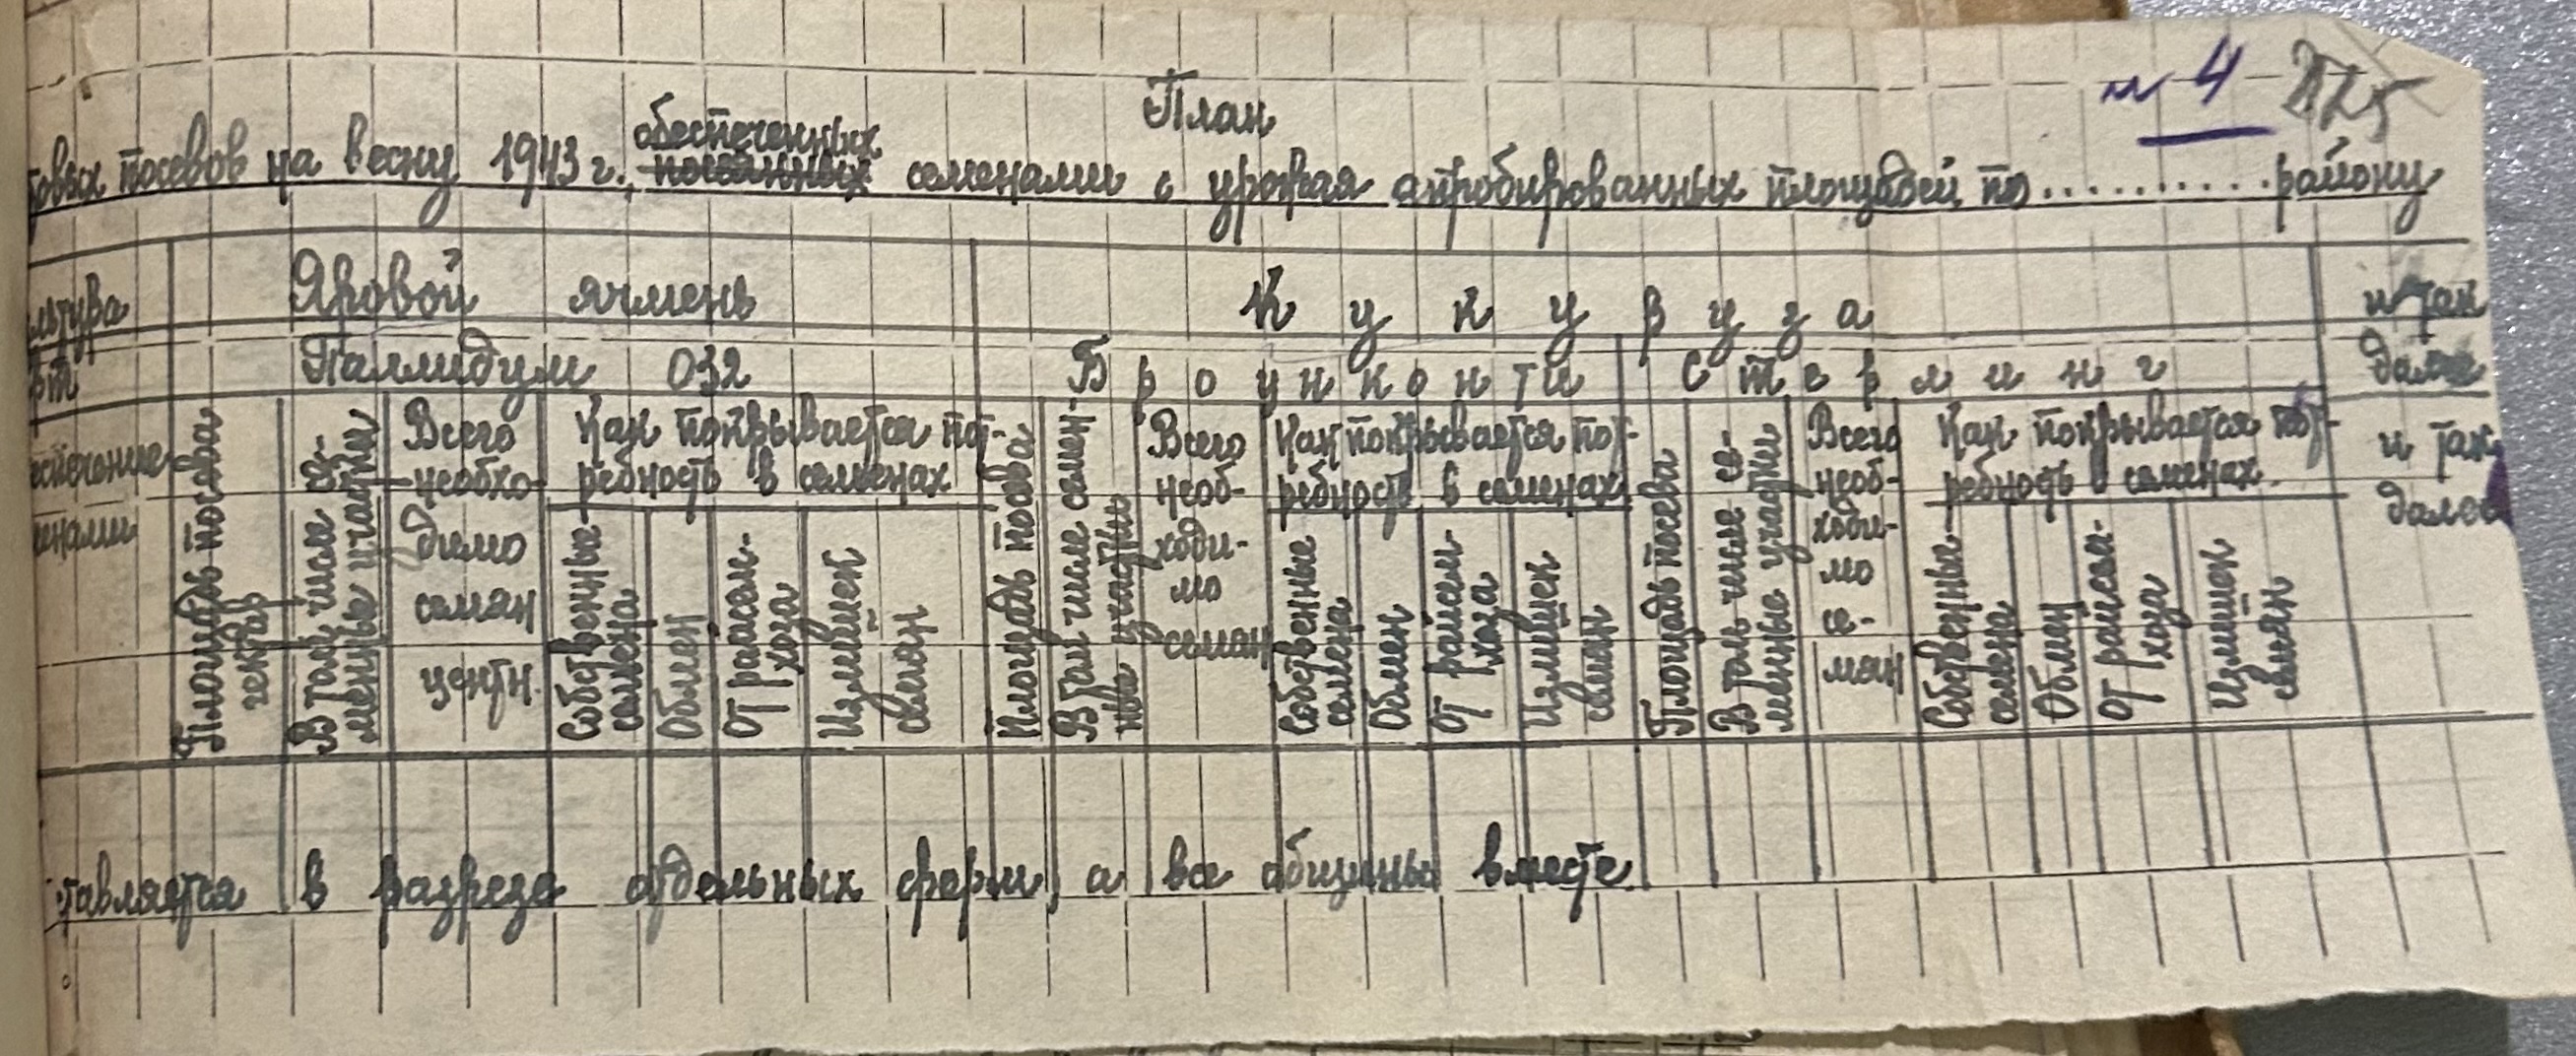 № 4 325
План
товых посевов на весну 1943 г., обеспеченных семенами с урожая апробированных площадей по .......... району
льтура Яровой ячмень Кукуруза и так
рт Паллидум 032 Броунконти Стерлинг далее
еспечение
менами
Площадь посева гектар
В том числе семенные участки
Всего необходимо семян центн.
Как покрывается потребность в семенах
Собственные семена
Обмен
От райсемхоза
Излишек семян
Площадь посева
В том числе семенные участки
Всего необходимо семян
Как покрывается потребность в семенах
Собственные семена
Обмен
От райсемхоза
Излишек семян
Площадь посева
В том числе семенные участки
Всего необходимо семян
Как покрывается потребность в семенах
Собственные семена
Обмен
От райсемхоза
Излишек семян
и так
далее
тавляется в разрезе отдельных ферм, а все общины вместе